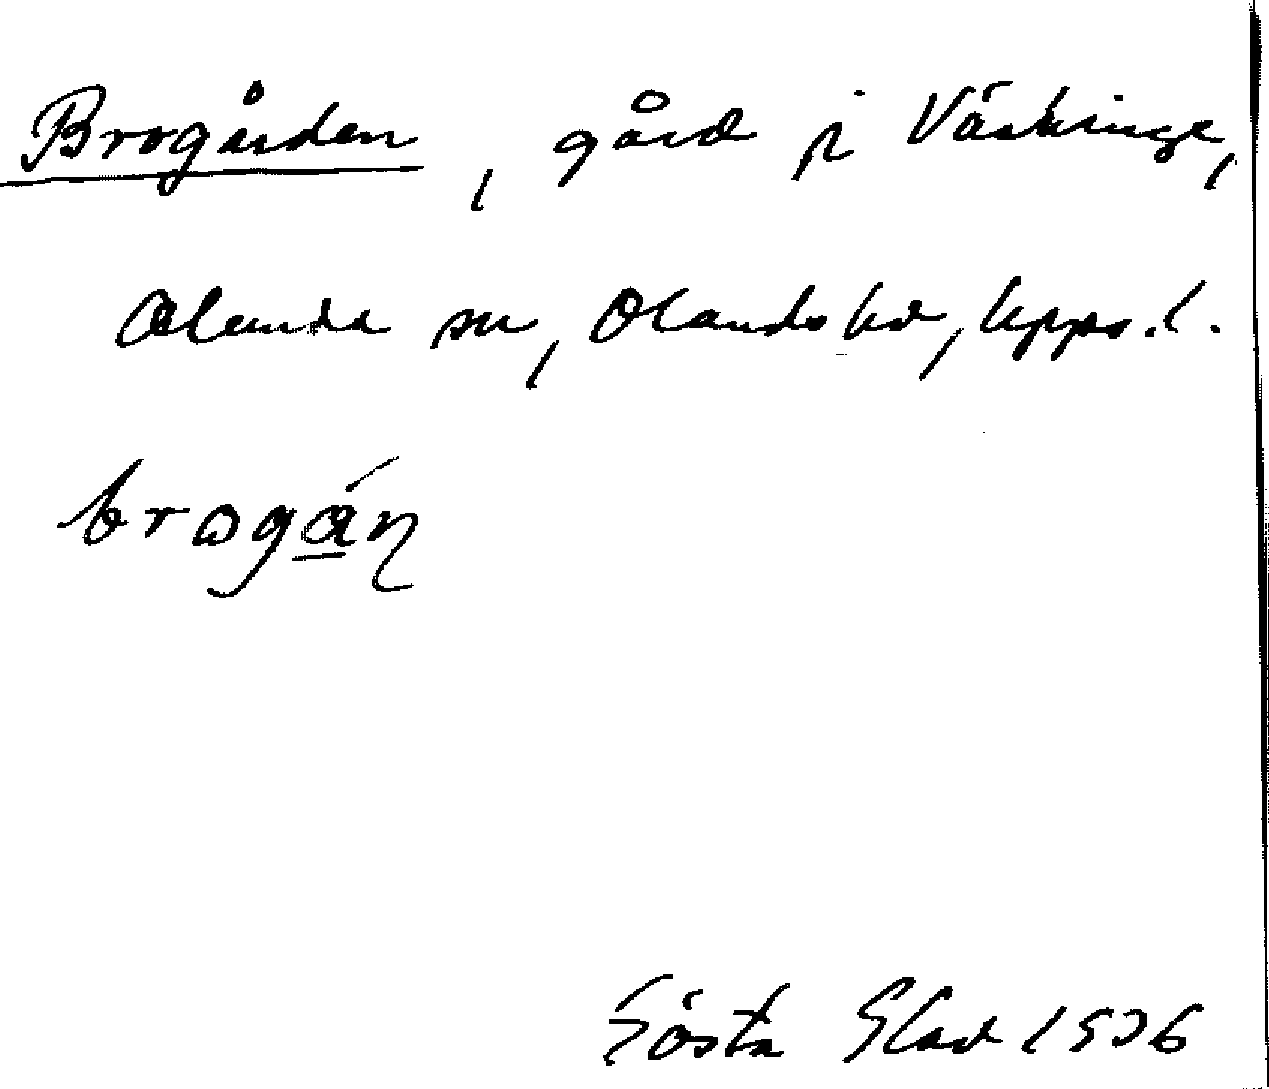 Brogården, gård i Väskinge,
Alunda sn, Olands hd, Upps.l.
brωgá̱ɳ
Gösta Glad 1936